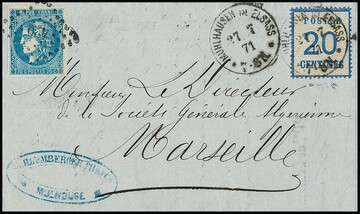 MÜHLHAUSEN IM ELSASS
27 7
71
POSTES
20
CENTIMES
Monsieur Le Directeur
de la Société Générale Algérienne
Marseille
MULHOUSE